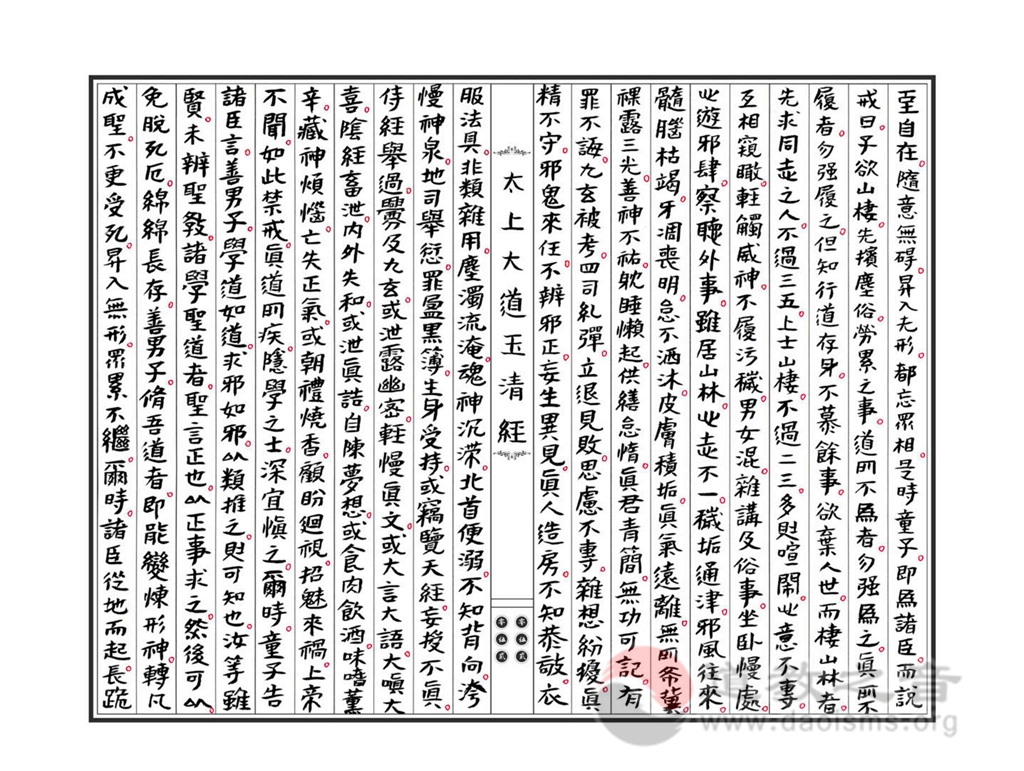 至自在隨意無碍昇入无形都忘眾相是時童子即爲諸臣而說
戒曰子欲山棲先擯塵俗勞累之事道所不爲者勿强爲之眞所不
履者勿强履之但知行道存身不慕餘事欲棄人世而棲山林者
先求同志之人不過三五上士山棲不過二三多則喧鬧心意不專
互相窺瞰輕觸威神不履污穢男女混雜講及俗事坐卧慢處
心遊邪肆察聽外事雖居山林心志不一穢垢通津邪風往來
髓腦枯竭牙凋喪明怠不洒沐皮膚積垢眞氣遠離無所希冀
裸露三光善神不祐躭睡懶起供繕怠惰眞君青簡無功可記有
罪不誨九玄被考四司糺彈立退見敗思慮不專雜想紛擾眞
精不守邪鬼來任不辨邪正妄生異見眞人造房不知恭敬衣
太上大道玉清經
服法具非類雜用塵濁流淹魂神沉滯北首便溺不知背向洿
慢神泉地司舉愆罪盈黑簿生身受持或竊覽天經妄授不眞
侍經舉過釁及九玄或泄露幽密輕慢眞文或大言大語大嗔大
喜陰經畜泄内外失和或泄眞誥自陳夢想或食肉飲酒味嗜薰
辛藏神煩惱亡失正氣或朝禮燒香顧盼迴視招魅來禍上帝
不聞如此禁戒眞道所疾隱學之士深宜愼之爾時童子告
諸臣言善男子學道如道求邪如邪以類推之則可知也汝等雖
賢未辨聖教諸學聖道者聖言正也以正事求之然後可以
免脫死厄綿綿長存善男子脩吾道者即能變煉形神轉凡
成聖不更受死昇入無形眾累不繼爾時諸臣從地而起長跪
道教之音
www.daoisms.org